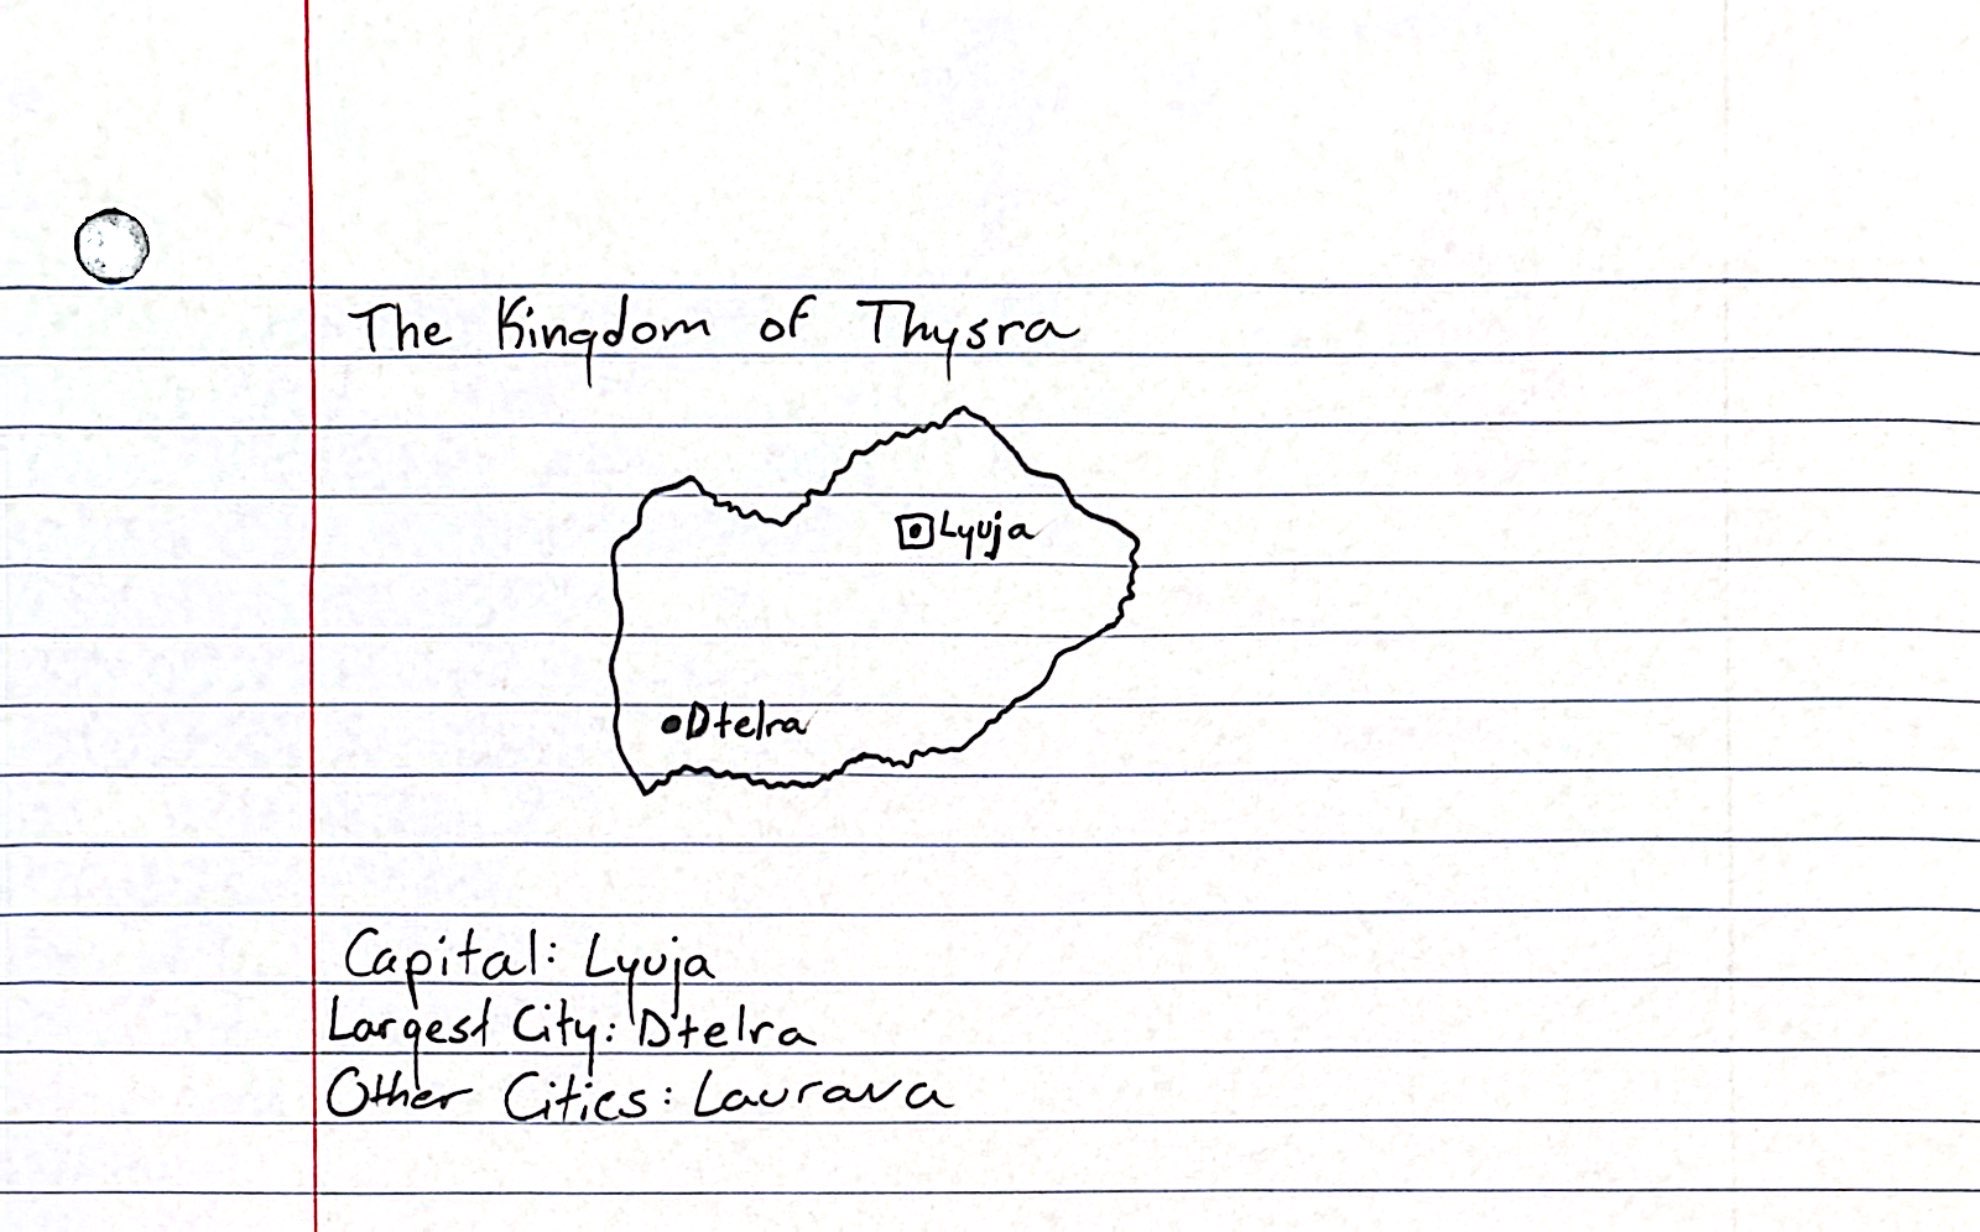 The Kingdom of Thysra
Lyuja
Dtelra
Capital: Lyuja
Largest City: Dtelra
Other Cities: Laurava